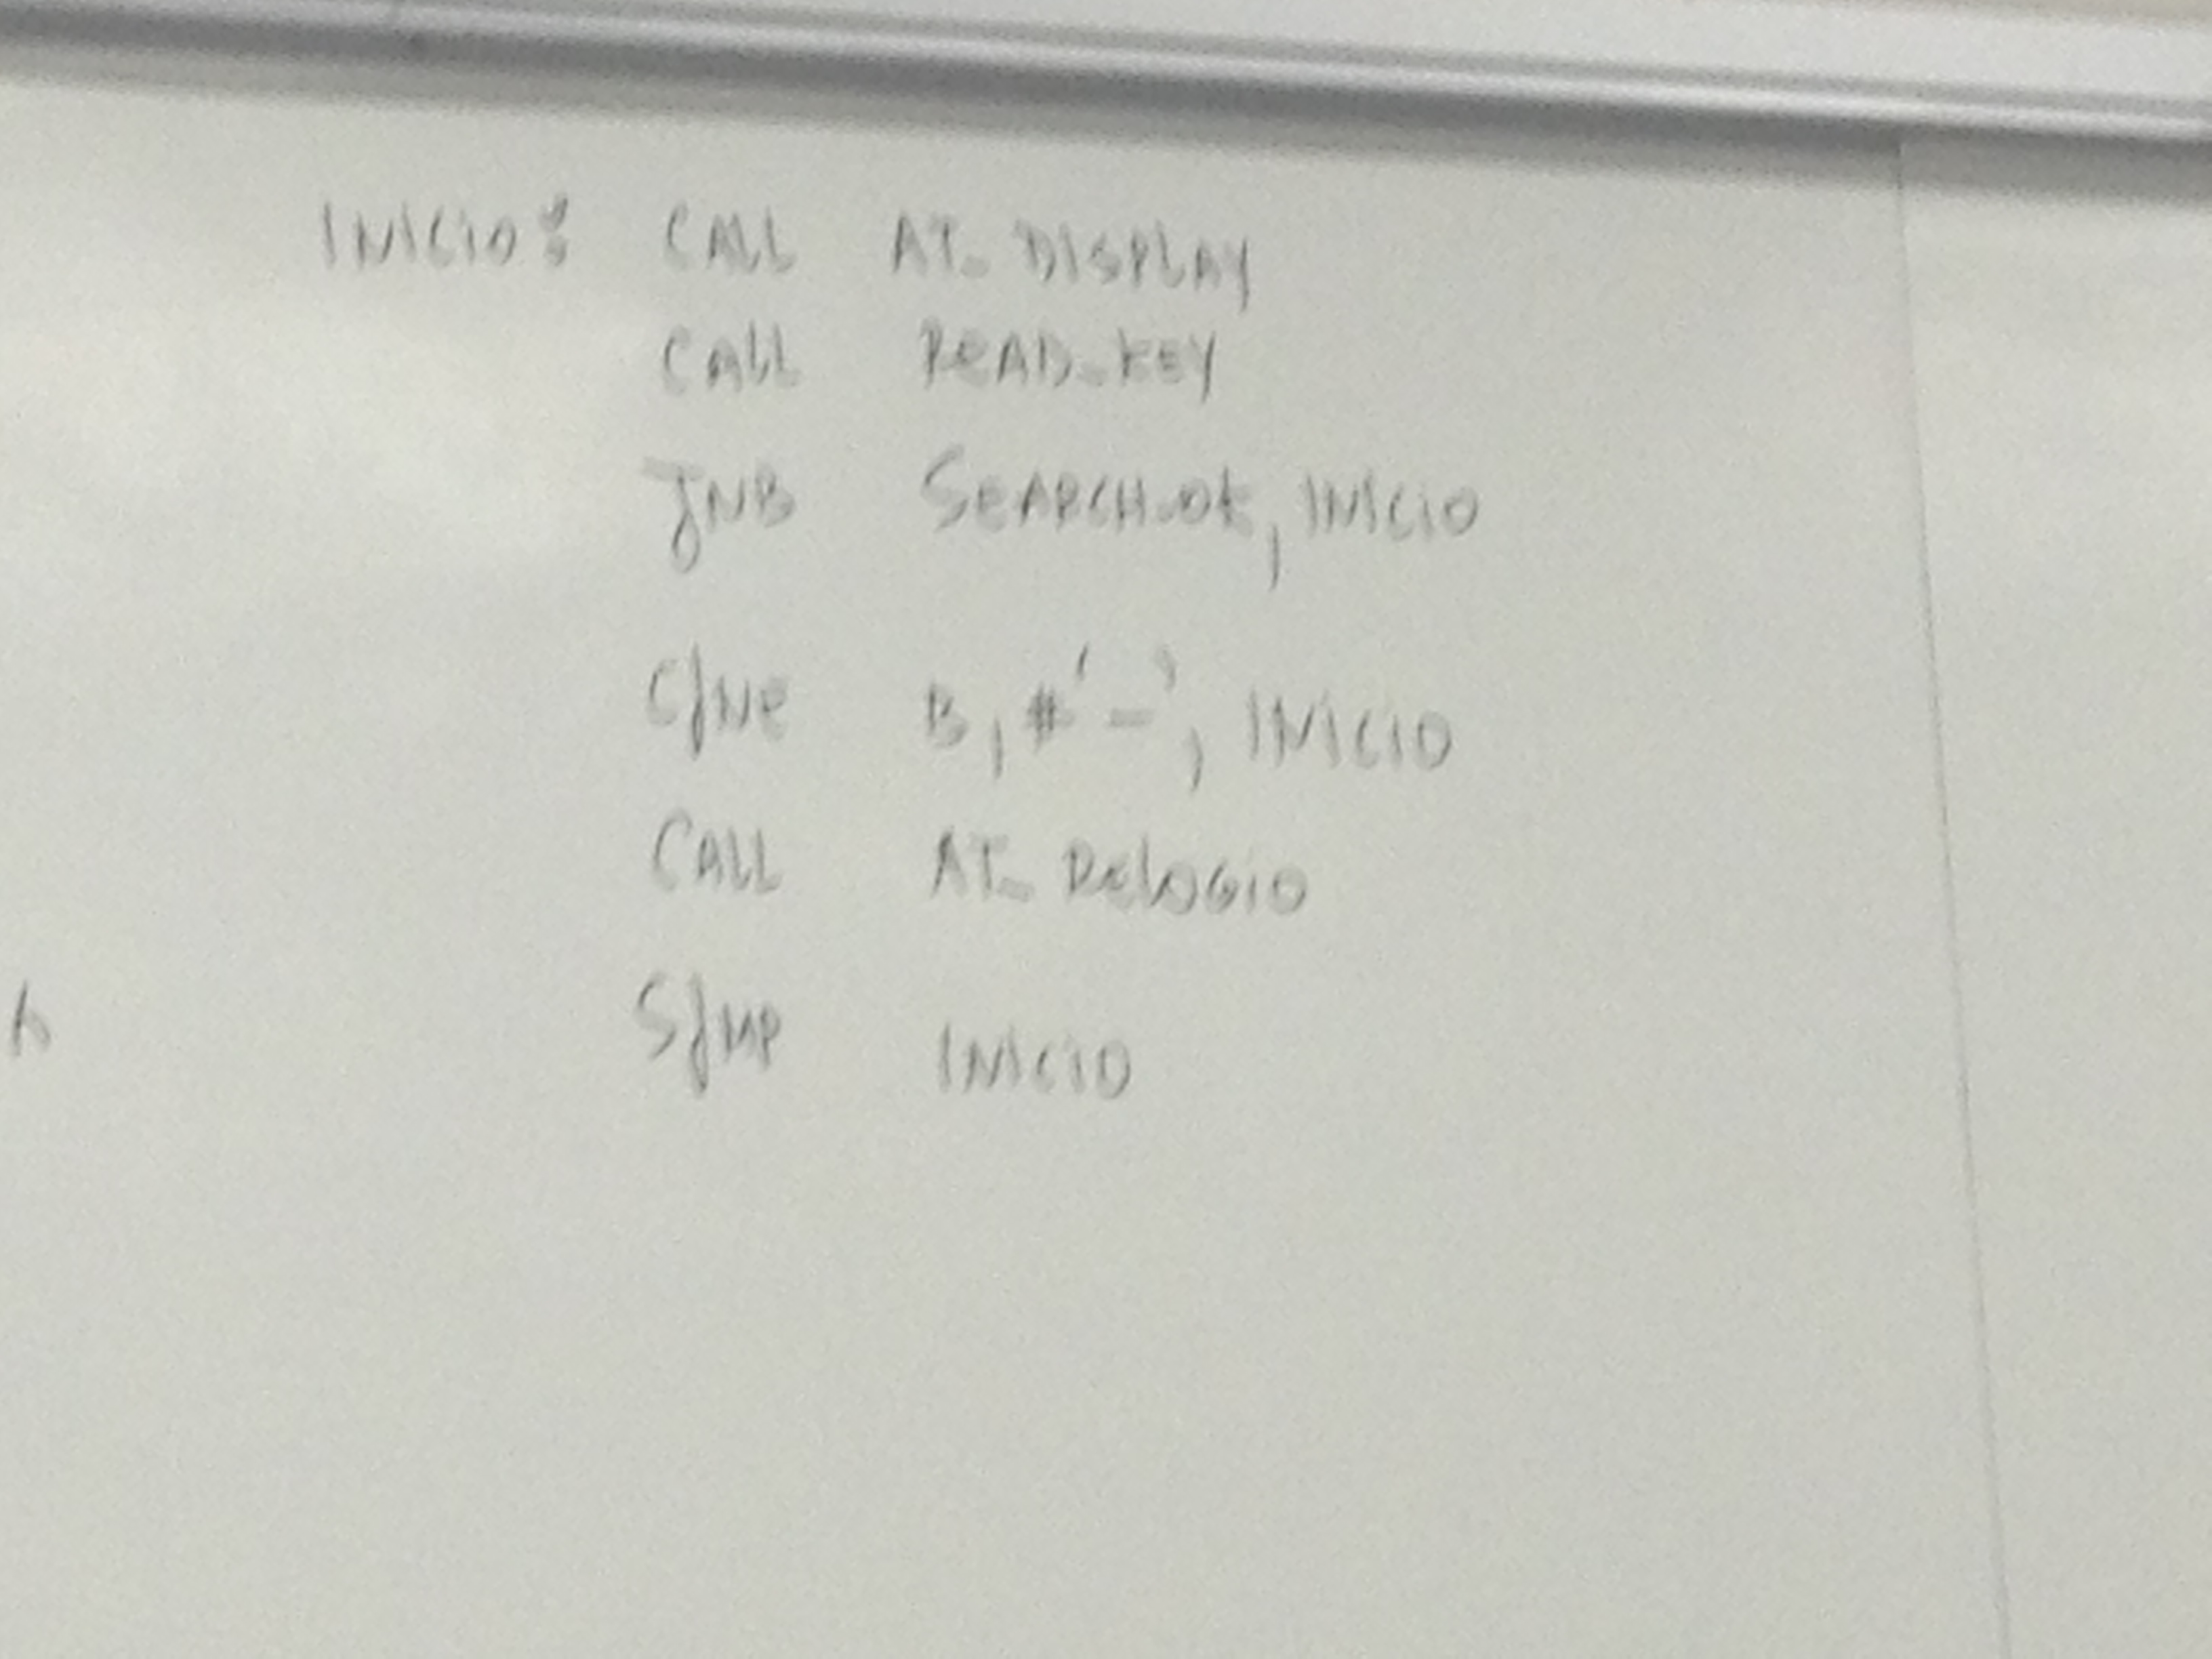 INICIO: CALL AT_DISPLAY
CALL READ_KEY
JNB SEARCH_OK, INICIO
CJNE B, #'-', INICIO
CALL AT_RELOGIO
SJMP INICIO